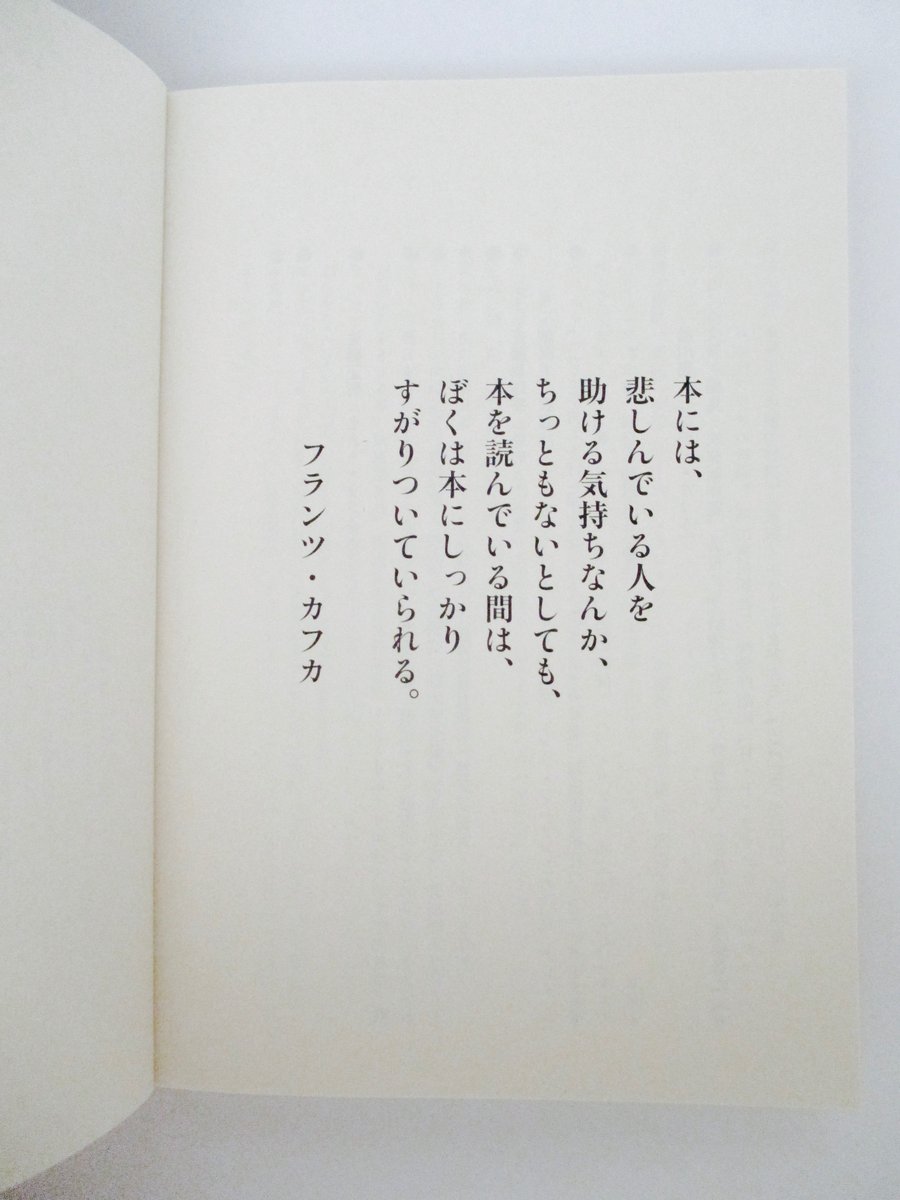 本には、
悲しんでいる人を
助ける気持ちなんか、
ちっともないとしても、
本を読んでいる間は、
ぼくは本にしっかり
すがりついていられる。
フランツ・カフカ